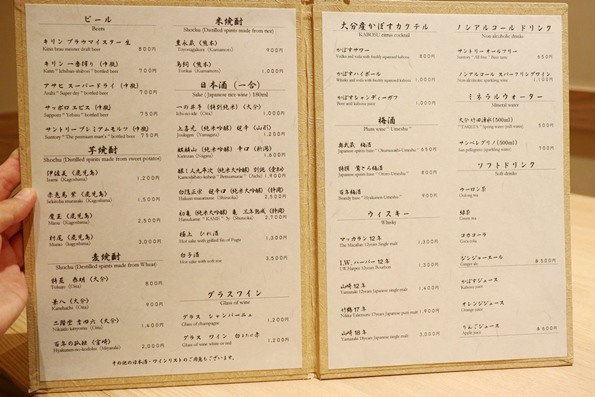 ビール
Beers
キリン ブラウマイスター 生
800円
キリン 一番搾り (中瓶)
Kirin " Ichiban-shibori " bottled beer
750円
アサヒ スーパードライ (中瓶)
Asahi " Super dry " bottled beer
750円
サッポロ エビス (中瓶)
Sapporo " Yebisu " bottled beer
750円
サントリー プレミアムモルツ (中瓶)
Suntory " The premium malt's " bottled beer
750円
芋焼酎
Shochu (Distilled spirits made from sweet potato)
伊佐美 (鹿児島)
Isami (Kagoshima)
1,200円
赤兎馬 紫 (鹿児島)
1,500円
魔王 (鹿児島)
Maou (Kagoshima)
2,500円
村尾 (鹿児島)
Murao (Kagoshima)
3,000円
麦焼酎
Shochu (Distilled spirits made from Wheat)
(大分)
800円
兼八 (大分)
Kanehachi (Oita)
900円
二階堂 吉四六 (大分)
1,400円
百年の孤独 (宮崎)
Hyakunen-no-kodoku (Miyazaki)
2,000円
米焼酎
Shochu (Distilled spirits made from rice)
豊永蔵 (熊本)
Toyonagakura (Kumamoto)
900円
鳥飼 (熊本)
Torikai (Kumamoto)
1,000円
日本酒 (一合)
Sake : Japanese rice wine : 180ml
一の井手 (特別純米) (大分)
Ichi-no-ide (Oita)
1,000円
上喜元 (純米吟醸) 超辛 (山形)
Joukigen (Yamagata)
1,200円
麒麟山 (純米吟醸) 辛口 (新潟)
Kirinzan (Niigata)
1,600円
2,000円
(静岡)
2,500円
2,700円
極上 ひれ酒
Hot sake with grilled fin of Fugu
1,300円
白子酒
Hot sake with soft roe
3,500円
グラスワイン
Glass of wine
グラス シャンパーニュ
Glass of champagne
1,200円
グラス ワイン 白または赤
Glass of wine white or red
1,200円
その他の日本酒・ワインリストのご用意もございます。
大分産かぼすカクテル
KABOSU citrus cocktail
かぼすサワー
Vodka and soda with freshly squeezed kabosu
1,000円
かぼすハイボール
Whisky and soda with freshly squeezed kabosu
1,000円
かぼすシャンディーガフ
Beer and kabosu juice
1,000円
梅酒
Plum wine " Umeshu "
奥武蔵 梅酒
Japanese spirits base " Okumusashi Umeshu "
鶯とろ梅酒
850円
百年梅酒
Brandy base " Hyakunen Umeshu "
900円
ウィスキー
Whisky
マッカラン 12年
The Macallan 12years Single malt
1,300円
I.W. ハーパー 12年
I.W.Harper 12years Bourbon
1,300円
山崎 12年
Yamazaki 12years Japanese single malt
1,400円
竹鶴 17年
1,900円
山崎 18年
Yamazaki 18years Japanese single malt
3,000円
ノンアルコール ドリンク
Non-alcoholic drinks
サントリー オールフリー
Suntory " All-free " Beer taste
650円
ノンアルコール スパークリングワイン
1,100円
ミネラルウォーター
Mineral water
(500ml)
500円
サンペレグリノ (500ml)
San pellegrino (sparkling water)
700円
ソフトドリンク
Soft drinks
ウーロン茶
Oolong tea
緑茶
Green tea
コカコーラ
Coca cola
ジンジャーエール
Ginger ale
各 500円
かぼすジュース
Kabosu juice
オレンジジュース
Orange juice
りんごジュース
Apple juice
各 600円